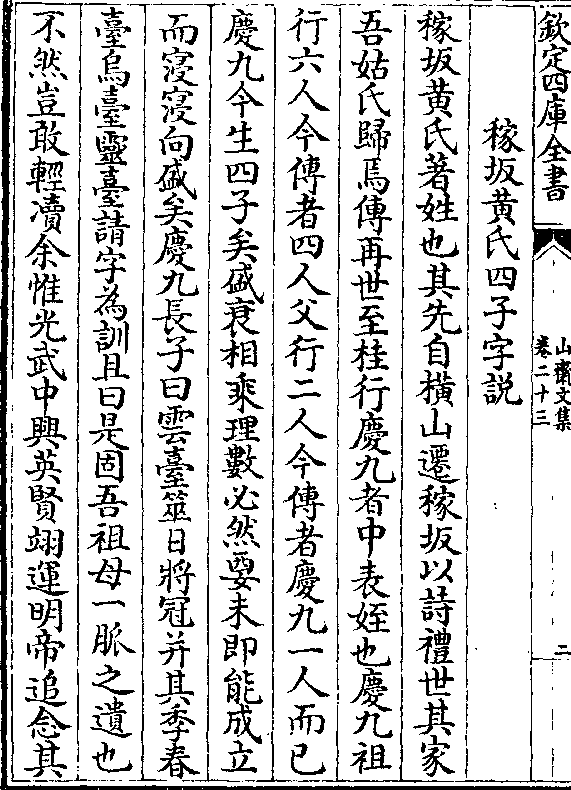 欽定四庫全書
山齋文集
卷二十三
二
稼坂黃氏四子字説
稼坂黃氏著姓也其先自橫山遷稼坂以詩禮世其家
吾姑氏歸焉傳再世至桂行慶九者中表姪也慶九祖
行六人今傳者四人父行二人今傳者慶九一人而已
慶九今生四子矣盛衰相乘理數必然要未即能成立
而寖寖向盛矣慶九長子曰雲臺筮日將冠并其季春
臺烏臺靈臺請字為訓且曰是固吾祖母一脈之遺也
不然豈敢輕凟余惟光武中興英賢翊運明帝追念其